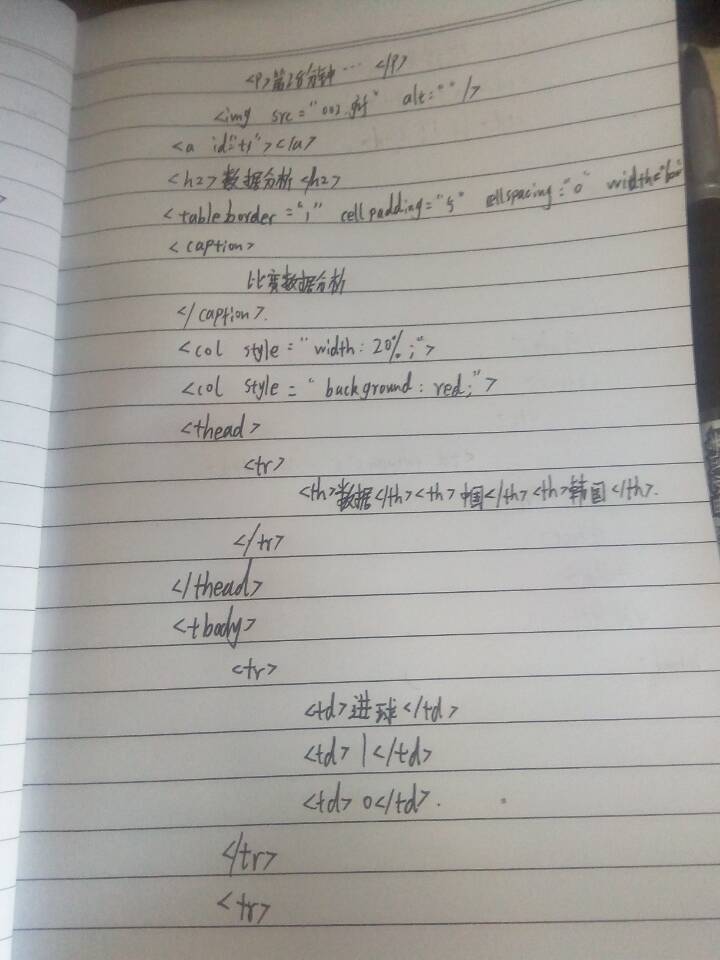 <p>第28分钟… </p>
<img src="003.gif" alt="" />
<a id="t1"></a>
<h2>数据分析</h2>
<tableborder="1" cellpadding="5" cellspacing="0" width="
<caption>
比赛数据分析
</caption>.
<col style="width:20%;">
<col style="background:red;">
<thead>
<tr>
<th>数据</th><th>中国</th><th>韩国</th>.
</tr>
</thead>
<tbody>
<tr>
<td>进球</td>
<td>1</td>
<td>0</td>.
</tr>
<tr>